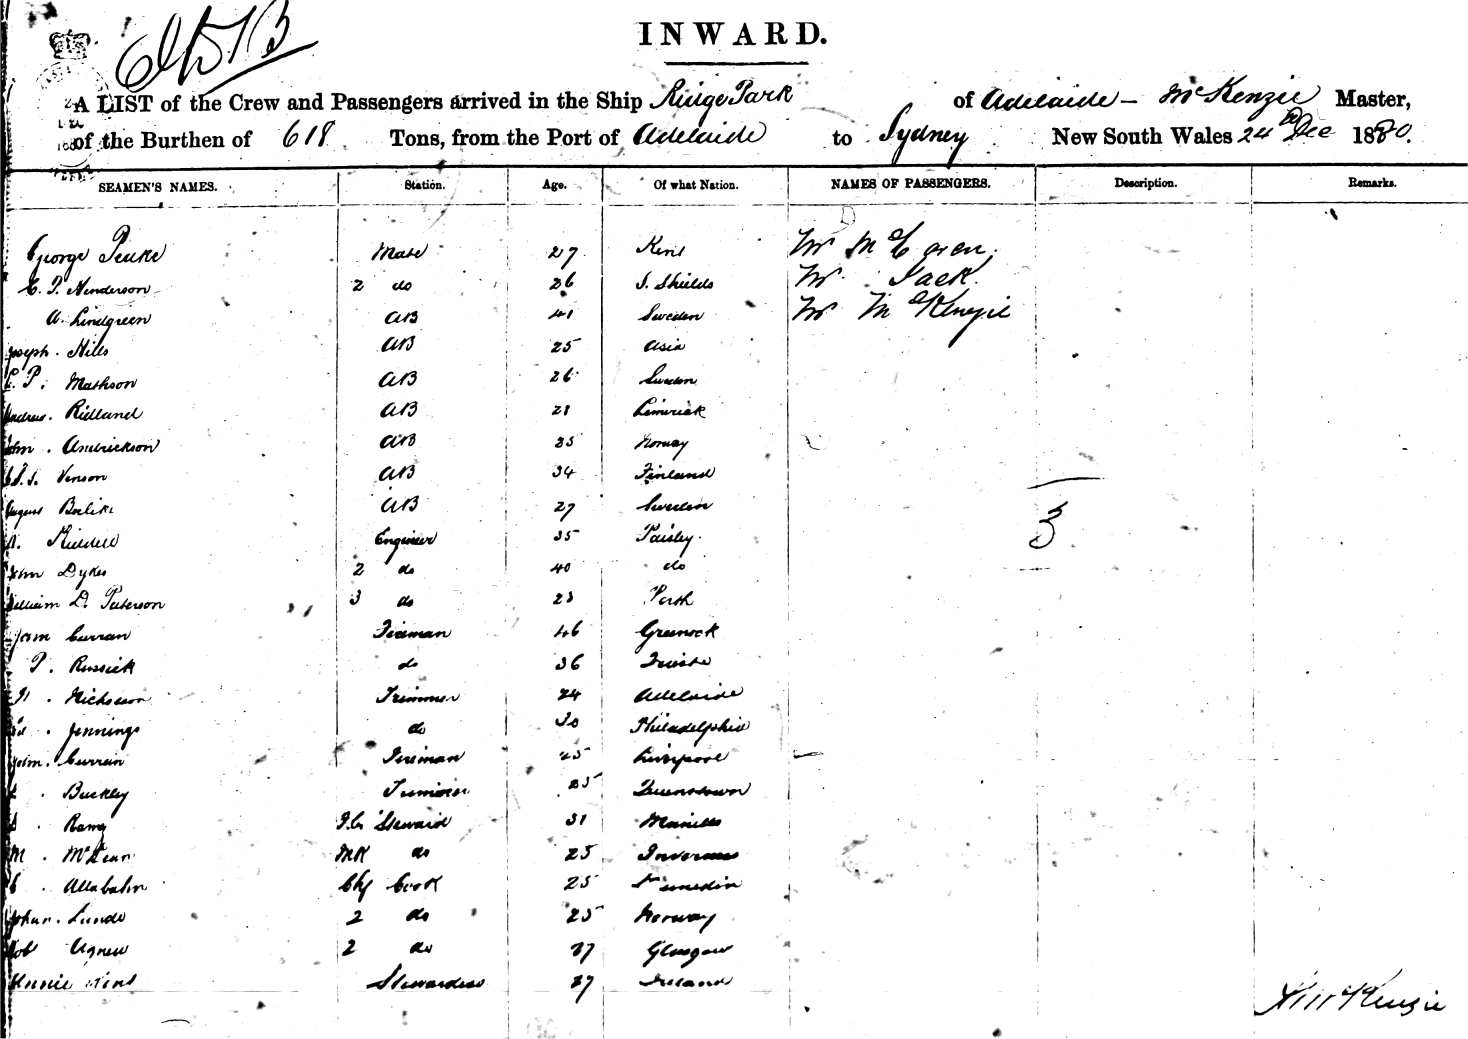 INWARD.
A LIST of the Crew and Passengers arrived in the Ship Ridge Park of Adelaide - McKenzie Master,
of the Burthen of 618 Tons, from the Port of Adelaide to Sydney New South Wales 24th Dec 1880.
SEAMEN'S NAMES. Station. Age. Of what Nation. NAMES OF PASSENGERS. Description. Remarks.
George Mate 27 Kent Mr
C. P. Henderson 2 do 26 S. Shields Mr Jack
A. Lindgreen AB 41 Sweden Mr McKenzie
Joseph. Hills AB 25 Asia
P. Mathson AB 26 Sweden
Andrew. Ridland AB 28 Limerick
John. Andrickson AB 25 Norway
Venson AB 34 Finland
AB 27 Sweden
Engineer 35 Paisley
John Dykes 2 do 40 do
3
William D. Paterson 3 do 23 Perth
John Curran Fireman 46 Greenock
P. Russick do 36 Trieste
Trimmer 24 Adelaide
Jennings do 30 Philadelphia
John. Curran Fireman 25 Liverpool
Buckley Trimmer 25 Queenstown
Ramy Steward 31 Manilla
M. McLean do 25 Inverness
Allabahn Chf Cook 25 Dunedin
Johan. Lunde 2 do 25 Norway
Rob Agnew 2 do 27 Glasgow
Annie Stewardess 27 Ireland
McKenzie